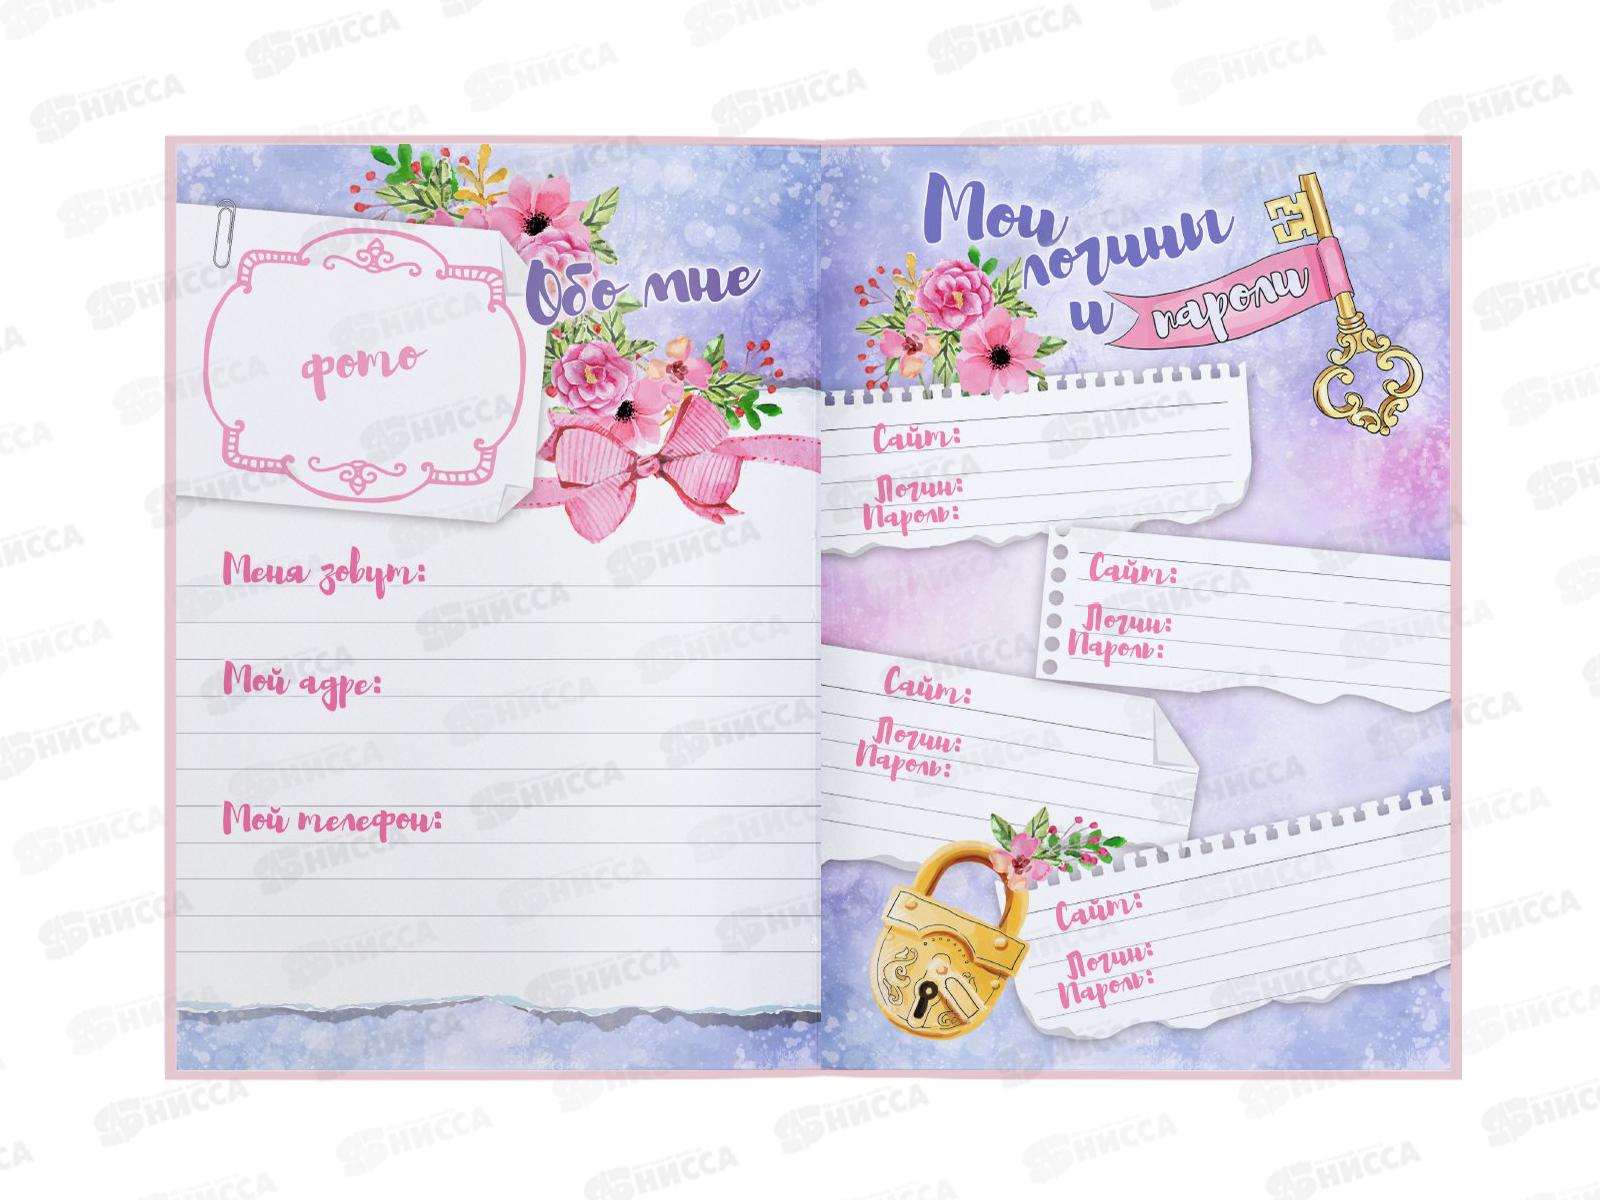 Обо мне
фото
Меня зовут:
Мой адре:
Мой телефон:
Мои
логины
и пароли
Сайт:
Логин:
Пароль:
Сайт:
Логин:
Пароль:
Сайт:
Логин:
Пароль:
Сайт:
Логин:
Пароль:
НИССА